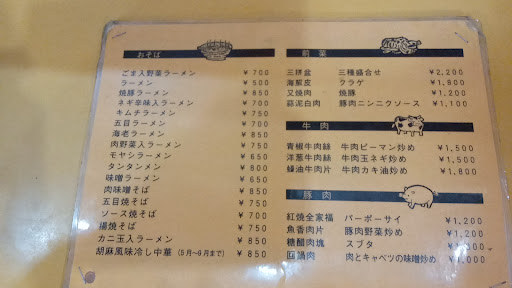 おそば
ごま入野菜ラーメン ¥700
ラーメン ¥500
焼豚ラーメン ¥850
ネギ辛味入ラーメン ¥700
キムチラーメン ¥700
五目ラーメン ¥700
海老ラーメン ¥850
肉野菜入ラーメン ¥750
モヤシラーメン ¥750
タンタンメン ¥800
味噌ラーメン ¥850
肉味噌そば ¥850
五目焼そば ¥850
ソース焼そば ¥750
揚焼そば ¥850
カニ玉入ラーメン ¥850
胡麻風味冷し中華(5月~9月まで) ¥850
前菜
三拼盆 三種盛合せ ¥2,200
海蜇皮 クラゲ ¥1,800
叉焼肉 焼豚 ¥1,200
蒜泥白肉 豚肉ニンニクソース ¥1,100
牛肉
青椒牛肉絲 牛肉ピーマン炒め ¥1,500
洋葱牛肉絲 牛肉玉ネギ炒め ¥1,500
蠔油牛肉片 牛肉カキ油炒め ¥1,800
豚肉
紅焼全家福 バーボーサイ ¥1,200
魚香肉片 豚肉野菜炒め ¥1,200
糖醋肉塊 スブタ ¥1,300
回鍋肉 肉とキャベツの味噌炒め ¥1,000